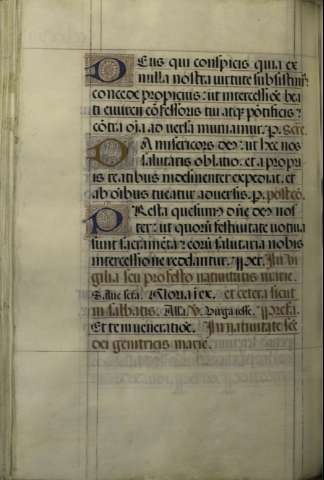 Deus qui conspicis quia ex
nulla nostra uirtute subsistimꝰ:
concede propicius: ut intercessiōe bea
ti euurcii cōfessoris tui atqꝫ pōtificis:
cōtra oīa aduersa muniamur. p. Secre.
Da misericors deꝰ: ut hec nos
salutaris oblatio: et a propri
is reatibus indesinenter expediat, et
ab oībus tueatur aduersis. p. postcō.
Presta quesumꝰ dn̄e deꝰ nos
ter: ut quorū festiuitate uotiua
sunt sacramēta: eorū salutaria nobis
intercessione reddantur. Per. In vi
gilia seu professo natiuitatis marie.
Salue scā. Gloria i ex. et cetera sicut
in sabbatis. Alla. V. Uirga iesse. Prefa.
Et te in ueneratiōe. In natiuitate scē
dei genitricis marie.